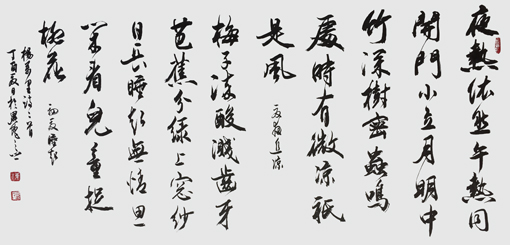 夜熱依然午熱同
開門小立月明中
竹深樹密蟲鳴
處時有微凉祇
是風 夏夜追凉
梅子流酸濺齒牙
芭蕉分綠上窗紗
日長睡起無情思
閑看兒童捉
柳花 初夏睡起
楊萬里詩二首
丁酉夏日於